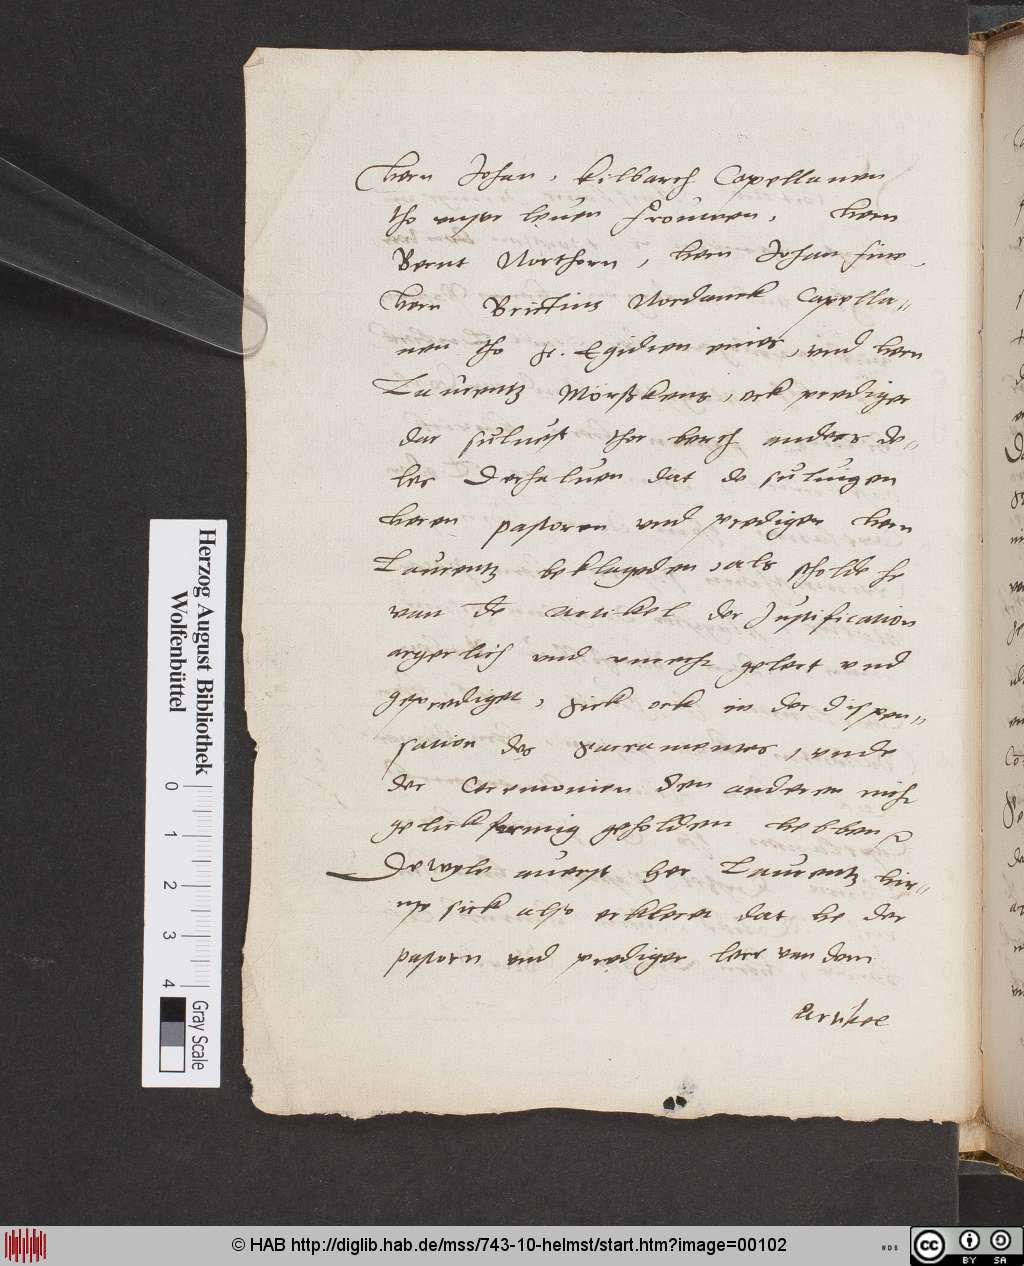 Hern Johan, Kilbarch Capellanen
tho unser leuen frouwen, Hern
Bernt Northorn, Hern Johan fine,
Hern Brictius Nordanck Capella„
nen tho S. Egidien eines, und hern
Laurentz Mörskens, ock prediger
dar sulvest thor berch anders de„
les Derhaluen dat de suluigen
heren pastoren und prediger hern
Laurentz beklageden, als scholde he
van de artikel der Justification
argerlich und unrecht gelert und
geprediget, Sick ock in der dispen„
sation des Sacramentes, unde
der Ceremonien den anderen nicht
gelickformig geholden hebben
Dewyle auerst her Laurentz hir„
up sick also erkleret dat he der
pastorn und prediger lere van dem
Artikel
Herzog August Bibliothek
Wolfenbüttel
0 1 2 3 4
Gray Scale
© HAB http://diglib.hab.de/mss/743-10-helmst/start.htm?image=00102
cc BY SA